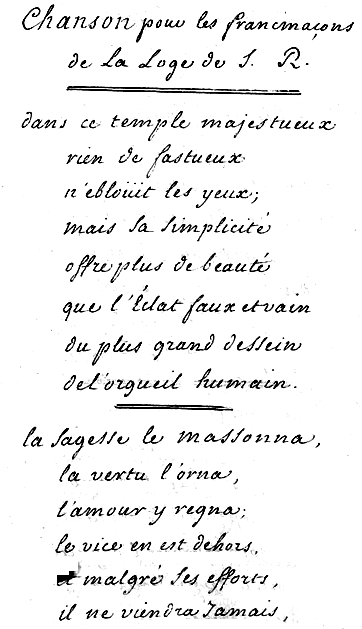 Chanson pour les francmaçons
de La Loge de S. R.
dans ce temple majestueux
rien de fastueux
n'eblöüit les yeux;
mais sa simplicité
offre plus de beauté
que l'Éclat faux et vain
du plus grand dessein
de l'orgueil humain.
la sagesse le massonna,
la vertu l'orna,
l'amour y regna;
le vice en est dehors,
et malgré ses efforts,
il ne viendra Jamais,